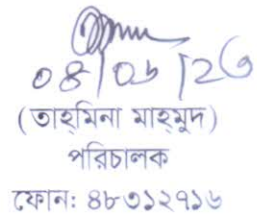 ০৪/০৬/২৩
(তাহমিনা মাহমুদ)
পরিচালক
ফোন: ৪৮৩১২৭১৬